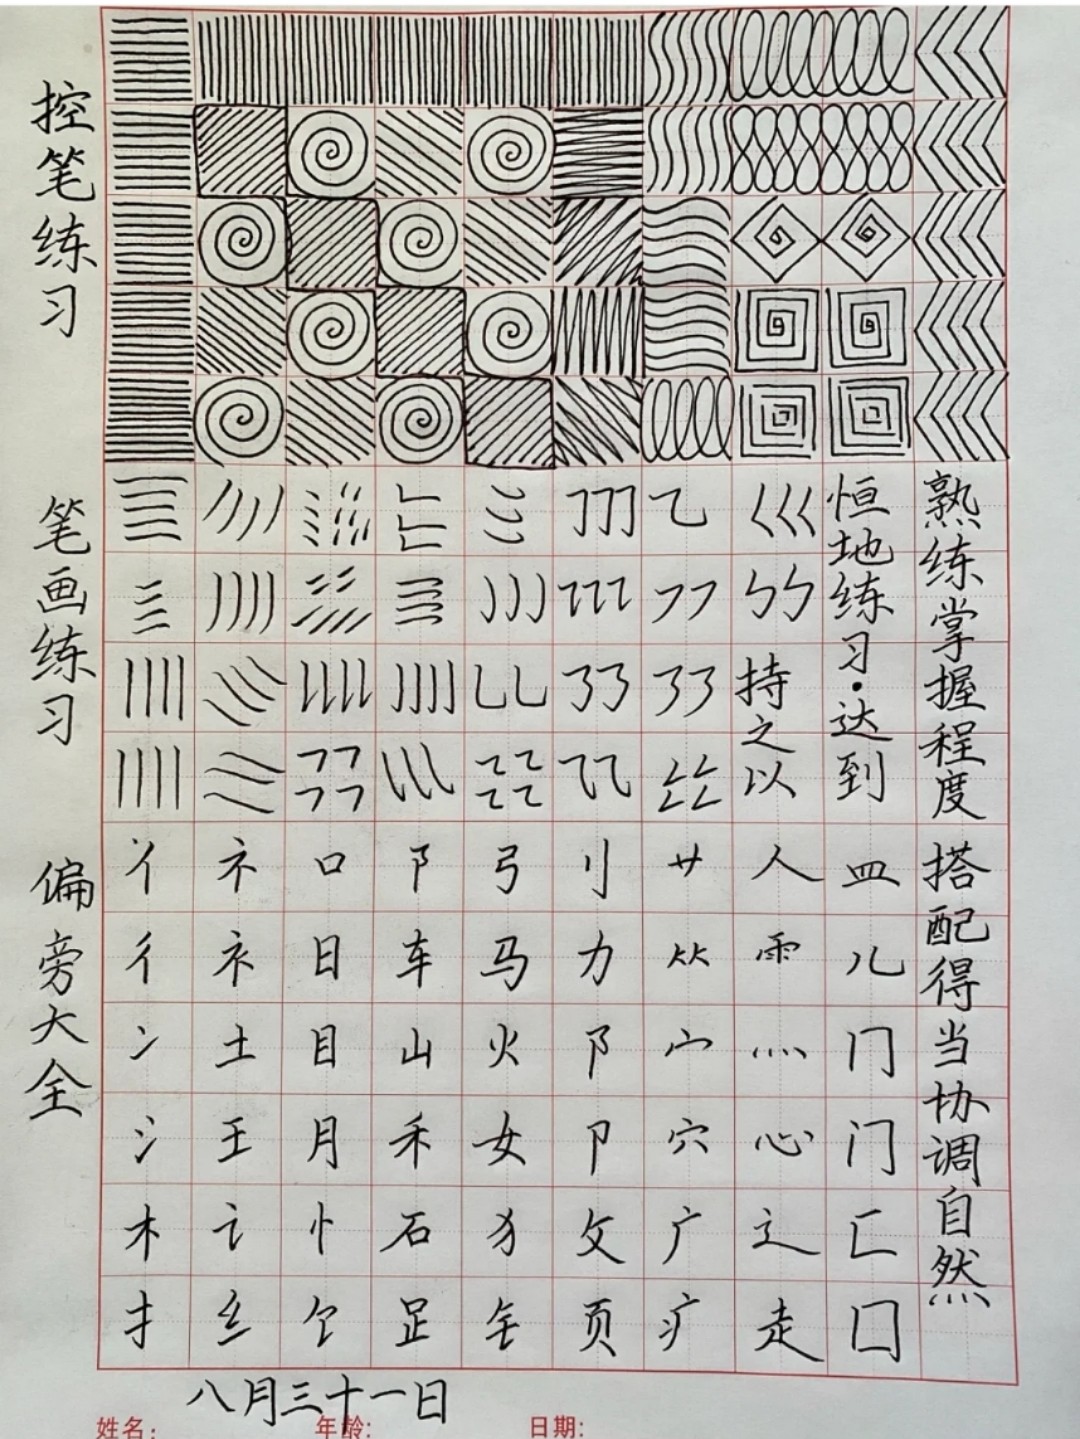 控笔练习
笔画练习
偏旁大全
持之以
恒地练习·达到
熟练掌握程度
搭配得当协调自然
丬 礻 口 阝 弓 刂 艹 人 皿
彳 衤 日 车 马 力 ⺮ 雨 儿
冫 土 目 山 火 阝 宀 灬 冂
氵 王 月 禾 女 卩 穴 心 门
木 讠 忄 石 犭 攵 广 辶 匚
扌 纟 饣 足 钅 页 疒 走 囗
八月三十一日
姓名: 年龄: 日期: